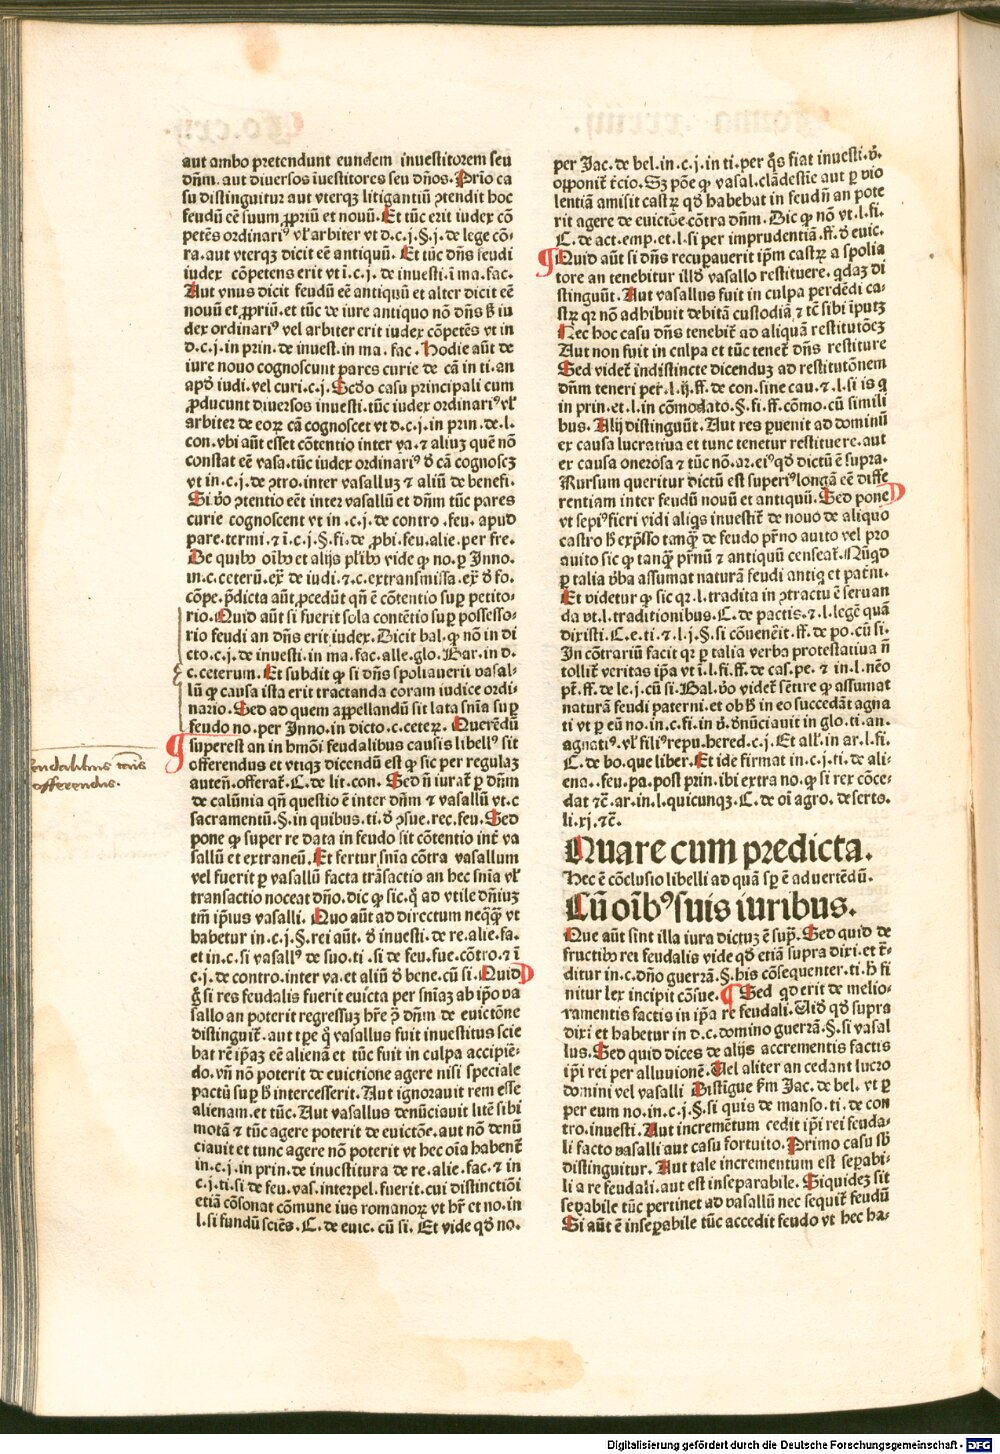 aut ambo pretendunt eundem inuestitorem seu
dñm. aut diuersos īuestitores seu dños. Prīo ca
su distinguitur aut vterqꝫ litigantiū ꝓtendit hoc
feudū eē suum ꝓpriū et nouū. Et tūc erit iudex cō
petēs ordinariꝰ vl' arbiter vt d.c.j.§.j. de lege cō-
ra. aut vterqꝫ dicit eē antiquū. Et tūc dñs feudi
iudex cōpetens erit vt ī.c.j. de inuesti. ī ma. fac.
Aut vnus dicit feudū eē antiquū et alter dicit eē
nouū et ꝓpriū. et tūc de iure antiquo nō dñs ß iu
dex ordinariꝰ vel arbiter erit iudex cōpetēs vt in
d.c.j. in prin. de inuest. in ma. fac. Hodie aūt de
iure nouo cognoscunt pares curie de cā in ti. an
apō iudi. vel curi.c.j. Scdo casu principali cum
ꝓducunt diuersos inuesti. tūc iudex ordinariꝰ vl'
arbiter de eoꝝ cā cognoscet vt d.c.j. in prin. de.l.
con. vbi aūt esset cōtentio inter va. ⁊ aliuꝫ quē nō
constat eē vasa. tūc iudex ordinariꝰ ð cā cognoscꝫ
vt in.c.j. de ꝓtro. inter vasalluꝫ ⁊ aliū de benefi.
Si v̄o ꝓtentio eēt inter vasallū et dñm tūc pares
curie cognoscent vt in .c.j. de contro .feu. apud
pare. termi. ⁊ ī.c.j.§.fi. de ꝓhi. feu. alie. per fre.
De quibꝰ oībꝰ et alijs pl'ibꝰ vide ꝙ no. ꝑ Inno.
in.c. ceterū. ex̄ de iudi. ⁊.c. extransmissa. ex̄ ð fo.
cōpe. p̄dicta aūt ꝓcedūt qñ ē cōtentio suꝑ petito-
rio. Quid aūt si fuerit sola contētio suꝑ possesso-
rio feudi an dñs erit iudex. Dicit bal. ꝙ nō in di
cto.c.j. de inuesti. in ma. fac. alle. glo. Bar. in d.
c. ceterum. Et subdit ꝙ si dñs spoliauerit vasal-
lū ꝙ causa ista erit tractanda coram iudice ordi-
nario. Sed ad quem appellandū sit lata snīa suꝑ
feudo no. per Inno. in dicto.c. ceteꝝ. Querēdū
superest an in hmōi feudalibus causis libellꝰ sit
offerendus et vtiqꝫ dicendū est ꝙ sic per regulaꝫ
auteñ. offerat̄. C. de lit. con. Sed ñ iurat̄ ꝑ dñm
de calūnia qñ questio ē inter dñm ⁊ vasallū vt.c
sacramentū.§. in quibus. ti. ð ꝓsue. rec. feu. Sed
pone ꝙ super re data in feudo sit cōtentio int̄ va
sallū et extraneū. Et fertur snīa cōtra vasallum
vel fuerit ꝑ vasallū facta trāsactio an hec snīa vl'
transactio noceat dño. dic ꝙ sic. q̄ ad vtile dñiuꝫ
tm̄ ipīus vasalli. Quo aūt ad directum neq̄q̄ vt
habetur in.c.j.§. rei aūt. ð inuesti. de re. alie. fa.
et in.c. si vasallꝰ de suo. ti. si de feu. fue. cōtro. ⁊ ī
c.j. de contro. inter va. et aliū ð bene. cū si. Quid
g̊ si res feudalis fuerit euicta per snīaꝫ ab ip̄o va
sallo an poterit regressuꝫ hr̄e p̄ dñm de euictōne
distinguit̄. aut tꝑe q̊ vasallus fuit inuestitus scie
bat rē ip̄aꝫ eē alienā et tūc fuit in culpa accipiē-
do. vn̄ nō poterit de euictione agere nisi speciale
pactū suꝑ ß intercesserit. Aut ignorauit rem esse
alienam. et tūc. Aut vasallus denūciauit litē sibi
motā ⁊ tūc agere poterit de euictōe. aut nō denū
ciauit et tunc agere nō poterit vt hec oīa habent̄
in.c.j. in prin. de inuestitura de re. alie. fac. ⁊ in
c.j. ti. si de feu. vas. interpel. fuerit. cui distinctiōi
etiā cōsonat cōmune ius romanoꝝ vt hr̄ et no. in
l. si fundū sciēs. C. de euic. cū si. Et vide qð no.
endalibus cauis
offerendus.
per Jac. de bel. in.c.j. in ti. per q̄s fiat inuesti. v̄.
opponit̄ t̄cio. Sꝫ pōe ꝙ vasal. clādestīe aut ꝑ vio
lentiā amisit castꝝ qð habebat in feudū an pote
rit agere de euictōe cōtra dñm. Dic ꝙ nō vt.l.fi.
C. de act. emp. et.l. si per imprudentiā. ff. ð euic.
Quid aūt si dñs recuperauerit ip̄m castꝝ a spolia
tore an tenebitur illð vasallo restituere. qdaꝫ di
stinguūt. Aut vasallus fuit in culpa perdēdi ca-
stꝝ qꝛ nō adhibuit debitā custodiā ⁊ tē sibi īputꝫ
Nec hoc casu dñs tenebit̄ ad aliquā restitutōeꝫ
Aut non fuit in culpa et tūc tenet̄ dñs restituere
Sed videt̄ indistincte dicenduꝫ ad restitutōnem
dñm teneri per.l.ij.ff. de con. sine cau. ⁊.l. si is q
in prin. et.l. in cōmodato.§.fi.ff. cōmo. cū simili
bus. Alij distinguūt. Aut res ꝑuenit ad dominiū
ex causa lucratiua et tunc tenetur restituere. aut
ex causa onerosa ⁊ tūc nō. ar. eiꝰ qð dictū ē supra.
Rursum queritur dictū est superiꝰ longā eē diffe
rentiam inter feudū nouū et antiquū. Sed pone
vt sepiꝰ fieri vidi aliq̄s inuestit̄ de nouo de aliquo
castro ß exp̄sso tanq̄ de feudo pr̄no auito vel pro
auito sic ꝙ tanq̄ pr̄nū ⁊ antiquū censeat̄. Nūqd
ꝑ talia v̄ba assumat naturā feudi antiq et pat̄ni.
Et videtur ꝙ sic qꝛ.l. tradita in ꝓtractu ē seruan
da vt.l. traditionibus. C. de pactis. ⁊.l. legē quā
dixisti. C.e.ti. ⁊.l.j.§. si cōuenēit. ff. de po. cū si.
In cōtrariū facit qꝛ ꝑ talia verba protestatiua ñ
tollit̄ veritas ip̄a vt ī.l.fi.ff. de cas. pe. ⁊ in.l. nēo
pt̄.ff. de le.j. cū si. Bal. v̄o videt̄ sētire ꝙ assumat
naturā feudi paterni. et ob ß in eo succedāt agna
ti vt ꝑ eū no. in.c.fi. in v̄. ðnūciauit in glo. ti. an.
agnatiꝰ. vl' filiꝰ repu. hered.c.j. Et all'. in ar.l.fi.
C. de bo. que liber. Et ide firmat in.c.j. ti. de ali-
ena. feu. pa. post prin. ibi extra no. ꝙ si rex cōce-
dat ⁊c̄. ar. in.l. quicunqꝫ. C. de oī agro. deserto.
li.xj. ⁊c̄.
Quare cum predicta.
Hec ē cōclusio libelli ad quā sꝑ ē aduertēdū.
Cū oībꝰ suis iuribus.
Que aūt sint illa iura dictuꝫ ē supͣ. Sed quid de
fructibꝰ rei feudalis vide qð etiā supra dixi. et tͣ-
ditur in.c. dño guerrā.§. his cōsequenter. ti. h̄ fi
nitur lex incipit cōsue. Sed qd erit de melio-
ramentis factis in ip̄a re feudali. Vid̄ qð supra
dixi et habetur in d.c. domino guerrā.§. si vasal
lus. Sed quid dices de alijs accrementis factis
ip̄i rei per alluuionē. Vel aliter an cedant lucro
domini vel vasalli Distigue ẜm Jac. de bel. vt ꝑ
per eum no. in.c.j.§. si quis de manso. ti. de con
tro. inuesti. Aut incremētum cedit ip̄i rei feuda-
li facto vasalli aut casu fortuito. Primo casu sb̄
distinguitur. Aut tale incrementum est seꝑabi-
li a re feudali. aut est inseparabile. Siquideꝫ sit
seꝑabile tūc pertinet ad vasallū nec sequit̄ feudū
Si aūt ē inseꝑabile tūc accedit feudo vt hec ha-
Digitalisierung gefördert durch die Deutsche Forschungsgemeinschaft - DFG